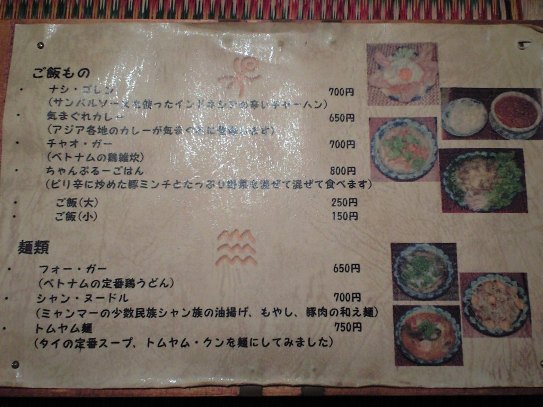 ご飯もの
・ ナシ・ゴレン 700円
(サンバルソースを使ったインドネシアの辛いチャーハン)
・ 気まぐれカレー 650円
(アジア各地のカレーが気まぐれに
・ チャオ・ガー 700円
(ベトナムの鶏雑炊)
・ ちゃんぷるーごはん 800円
(ピリ辛に炒めた豚ミンチとたっぷり野菜を混ぜて混ぜて食べます)
・ ご飯(大) 250円
・ ご飯(小) 150円
麺類
・ フォー・ガー 650円
(ベトナムの定番鶏うどん)
・ シャン・ヌードル 700円
(ミャンマーの少数民族シャン族の油揚げ、もやし、豚肉の和え麺)
・ トムヤム麺 750円
(タイの定番スープ、トムヤム・クンを麺にしてみました)